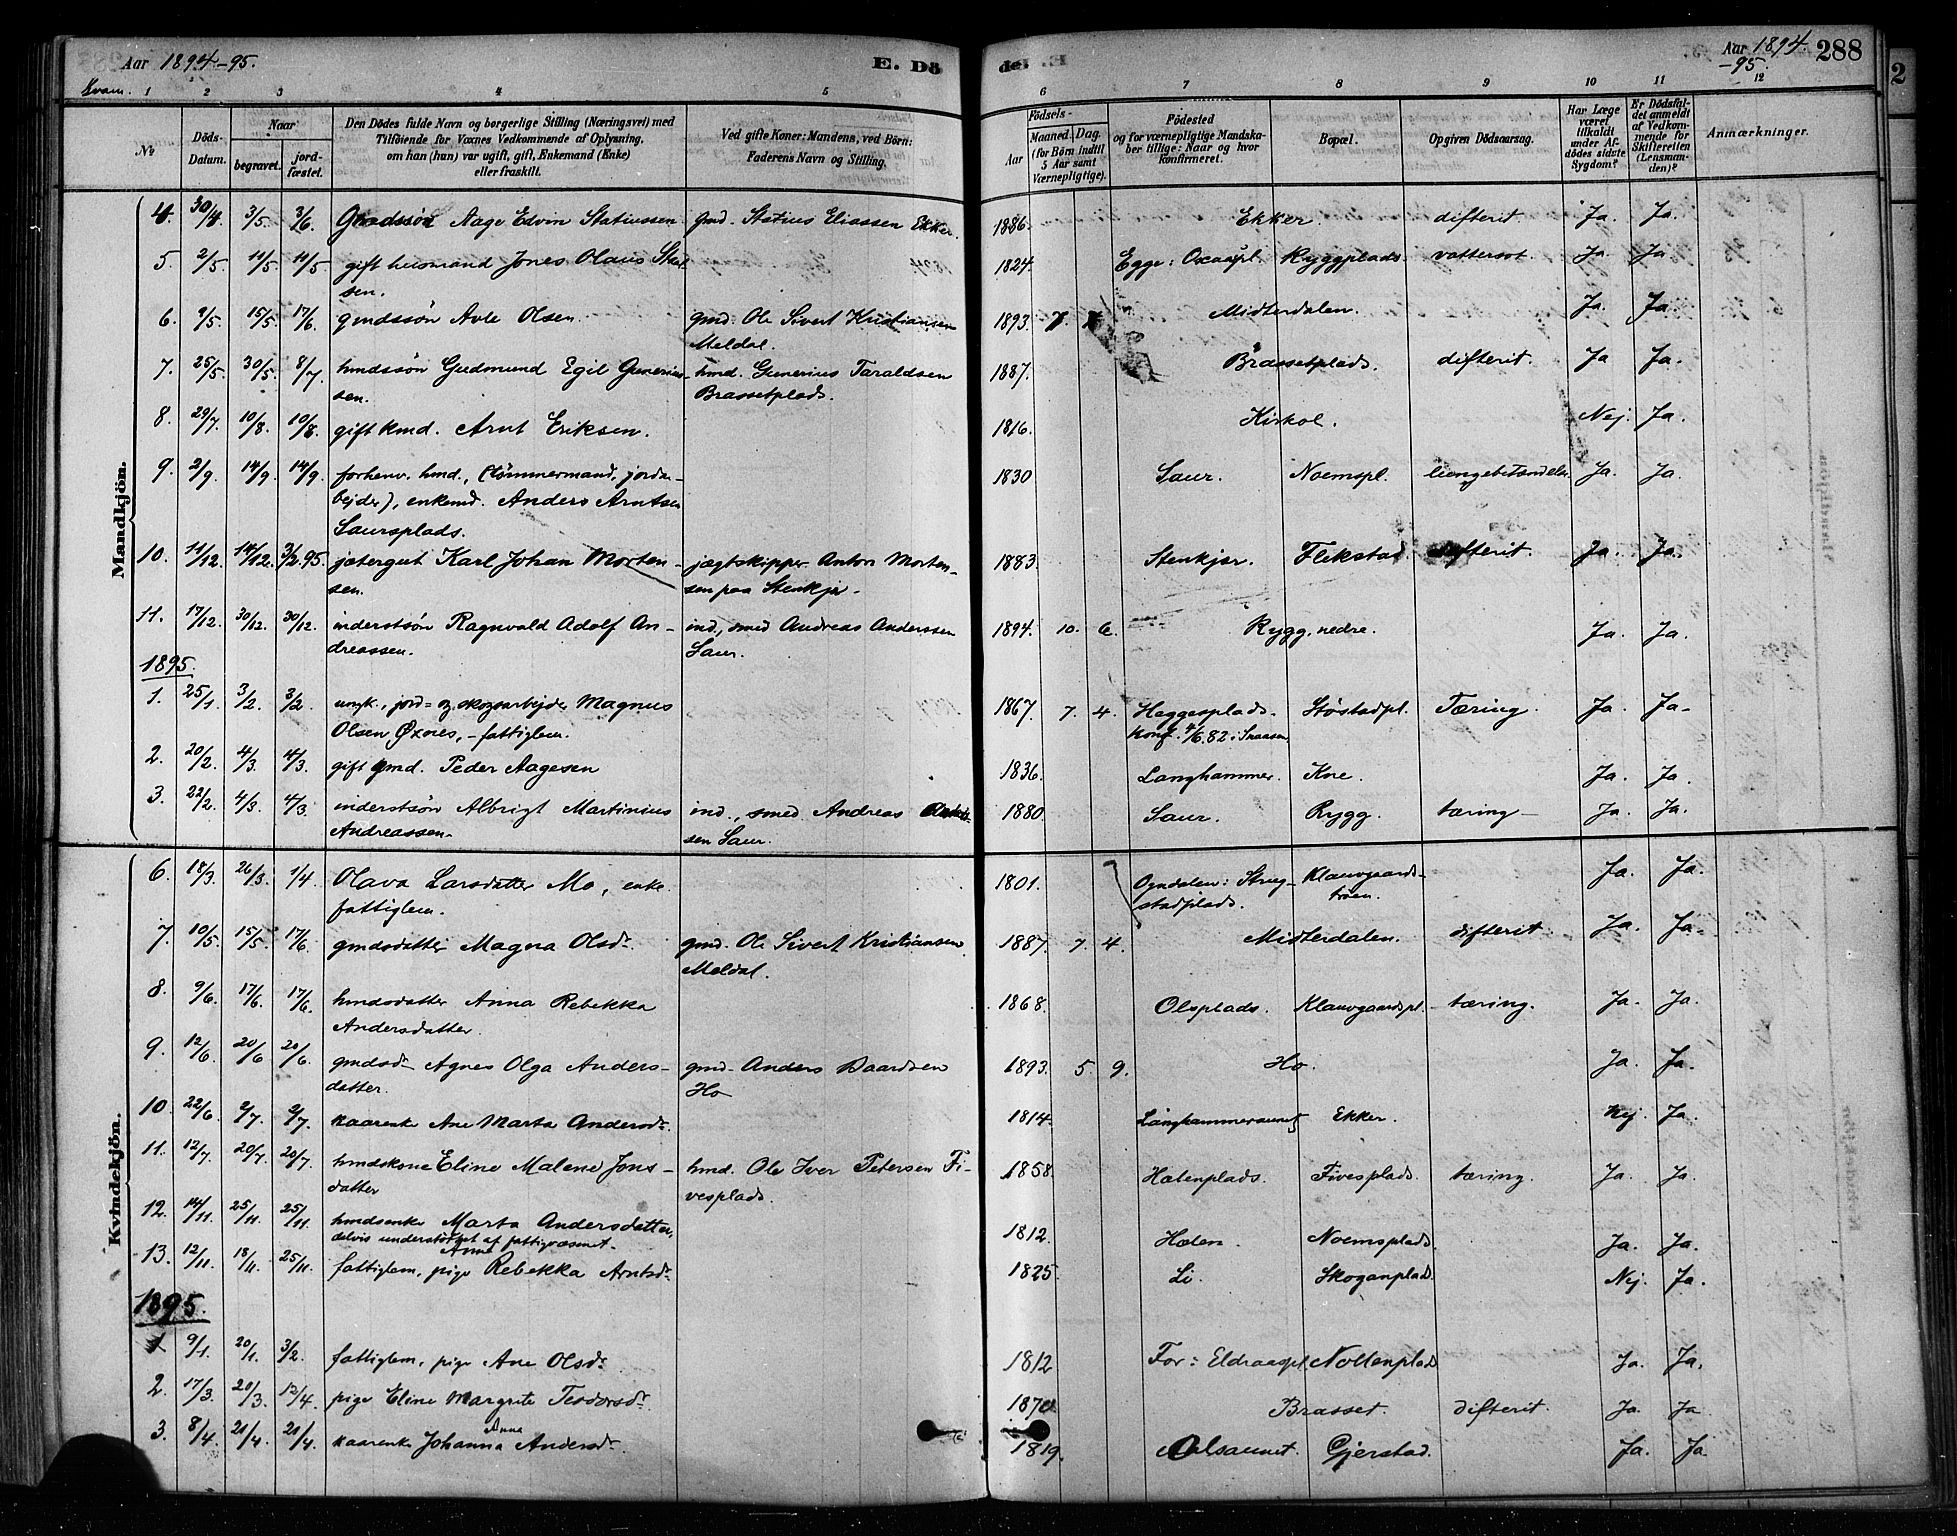 Aar 1894-95. E. Dö
de. Aar 1894. -95. 288
Kvam. 1 2 3 4 5 6 7 8 9 10 11 12
No
Döds-Datum.
Naar
begravet.
jord-fæstet.
Den Dödes fulde Navn og borgerlige Stilling (Næringsvei) med
Tilföiende for Voxnes Vedkommende af Oplysning,
om han (hun) var ugift, gift, Enkemand (Enke)
eller fraskilt.
Ved gifte Koner: Mandens, ved Börn:
Faderens Navn og Stilling.
Födsels-
Aar
Maaned. Dag.
(for Börn indtil
5 Aar samt
Værnepligtige).
Födested
og for værnepligtige Mandska-
ber tillige: Naar og hvor
konfirmeret.
Bopæl.
Opgiven Dödsaarsag.
Har Læge
været
tilkaldt
under Af-
dödes sidste
Sygdom?
Er Dödsfal-
det anmeldt
af Vedkom-
mende for
Skifteretten
(Lensman-
den)?
Anmærkninger.
Mandkjön.
4. 30/4 3/5. 3/6. Gmdssön Aage Edvin Statiussen gmd. Statius Eliassen Ekker. 1886. Ekker. difterit. Ja. Ja.
5. 2/5. 11/5. 11/5. gift husmand Jones Olaus 1824. Egge: Ryggplads. vattersot. Ja. Ja
sen.
6. 9/5. 15/5. 17/6. gmdssön Avle Olsen. gmd. Ole Sivert Kristiansen 1893. 7. Midterdalen. Ja. Ja.
Meldal.
7. 25/5. 30/5. 8/7. hmdssön Gudmund Egil Gunerius- hmd. Gunerius Taraldsen 1887. Brassetplads. difterit. Ja Ja.
sen. Brassetplads.
8. 29/7. 10/8. 10/8. gift kmd. Arnt Eriksen. 1816. Kirkol. Nej. Ja.
9. 2/9. 14/9. 14/9. forhenv. hmd., (tömmermand, jorda- 1830 Saur. Noemspl. lungebetændelse Ja. Ja.
bejder), enkemd. Anders Arntsen
Saursplads.
10. 11/12. 14/12. 3/2.95. jætergut Karl Johan Morten- jægtskipper Anton Morten- 1883. Stenkjær. Flekstad difterit. Ja. Ja.
sen. sen paa Stenkjær.
11. 17/12. 30/12. 30/12. inderstsön Ragnvald Adolf An- ind., smed Andreas Anderssen 1894. 10. 6. Rygg, nedre. Ja. Ja.
dreassen. Saur.
1895.
1. 25/1 3/2. 3/2. ungk., jord= og skogsarbejder Magnus 1867. 7. 4. Heggesplads. Støstadpl. Tæring. Ja. Ja.
Olsen Øxnes, - fattiglem. Konf. 4/6.82 i Snaasen
2. 20/2. 4/3. 4/3. gift gmd. Peder Aagesen 1836. Langhammer. Kne. Ja. Ja.
3. 22/2. 4/3. 4/3. inderstsön Albrigt Martinius ind., smed Andreas Anders- 1880. Saur. Rygg. tæring. Ja. Ja.
Andreassen. sen Saur.
Kvindekjön.
6. 18/3. 26/3. 1/4. Olava Larsdatter Mo, enke. 1801. Ogndalen: Strug- Klauvgaards- Ja. Ja.
fattiglem. stadplads. trøen.
7. 10/5. 15/5. 17/6. gmdsdatter Magna Olsdr. gmd. Ole Sivert Kristiansen 1887. 7. 4. Midterdalen. difterit. Ja. Ja.
Meldal.
8. 9/6. 17/6. 17/6. hmdsdatter Anna Rebekka 1868. Olsplads. Klauvgaardspl. tæring. Ja. Ja.
Andersdatter.
9. 12/6. 20/6 20/6. gmdsdr. Agnes Olga Anders- gmd. Anders Baardsen 1893. 5. 9. Ho. Ja. Ja.
datter. Ho
10. 22/6. 2/7. 2/7. kaarenke Ane Marta Andersdr. 1814. Langhammersaunet Ekker. Nej Ja.
11. 12/7. 20/7. 20/7. hmdskone Eline Malene Jons- hmd. Ole Iver Petersen Fi- 1858. Hælenplads. Fivesplads. tæring. Ja. Ja.
datter vesplads.
12. 14/11. 25/11. 25/11. hmdsenke Marta Andersdatter, 1812. Hælen. Noemsplads. Ja. Ja.
delvis understøttet af fattigvæsenet.
13. 12/11. 18/11. 25/11. fattiglem, pige Anne Rebekka Arntsdr. 1825. Li. Skoganplads. Nej. Ja.
1895.
1 9/1. 20/1. 3/2. fattiglem, pige Ane Olsdr. 1812 For: Eldraaspl. Noltenplads Ja. Ja.
2. 17/3. 20/3. 12/4. pige Eline Margrete Teodorsdr. 1870 Brasset. difterit. Ja. Ja
3. 8/4. 21/4. 21/4. kaarenke Johanna Anna Andersdr. 1819. Olsaunet. Gjerstad. Ja. Ja